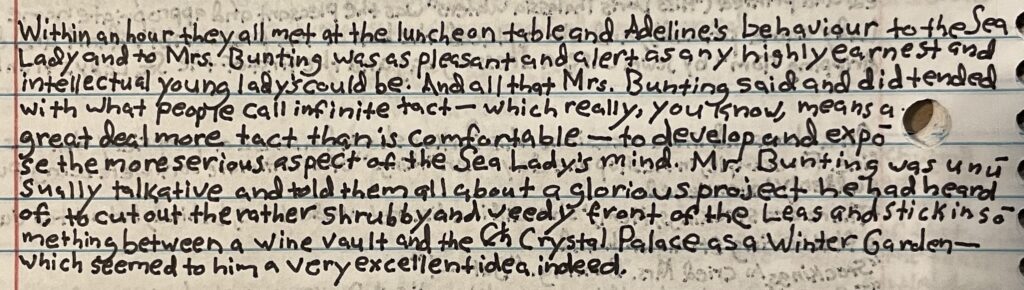 Within an hour they all met at the luncheon table and Adeline's behaviour to the Sea
Lady and to Mrs. Bunting was as pleasant and alert as any highly earnest and
intellectual young lady's could be. And all that Mrs. Bunting said and did tended
with what people call infinite tact — which really, you know, means a
great deal more tact than is comfortable — to develop and expo-
se the more serious aspect of the Sea Lady's mind. Mr. Bunting was unu-
sually talkative and told them all about a glorious project he had heard
of, to cut out the rather shrubby and weedy front of the Leas and stick in so-
mething between a wine vault and the Ch Crystal Palace as a Winter Garden—
which seemed to him a very excellent idea indeed.